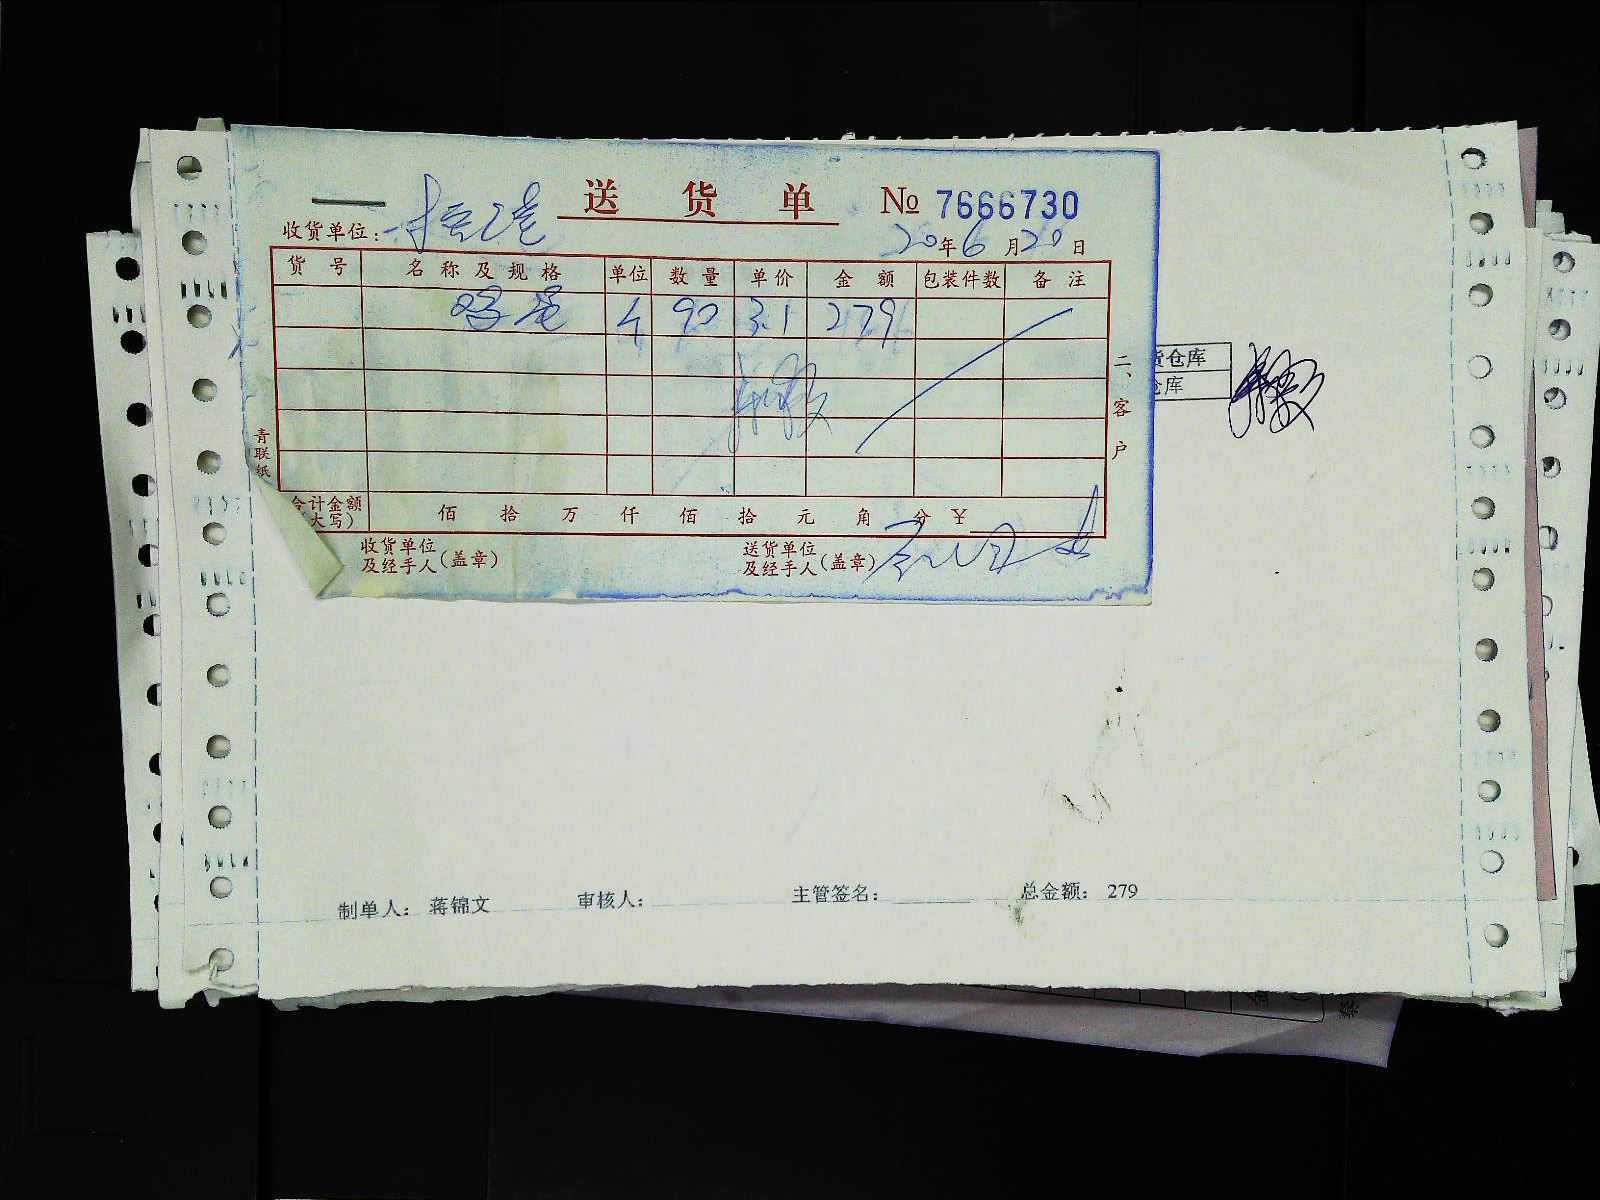 送货单 No 7666730
收货单位:
20年6月20日
货号 名称及规格 单位 数量 单价 金额 包装件数 备注
鸡蛋 斤 90 3.1 279
二、客户
青联纸
合计金额(大写) 佰 拾 万 仟 佰 拾 元 角 分 ¥
收货单位及经手人(盖章)
送货单位及经手人(盖章)
货仓库
仓库
制单人： 蒋锦文 审核人： 主管签名： 总金额： 279